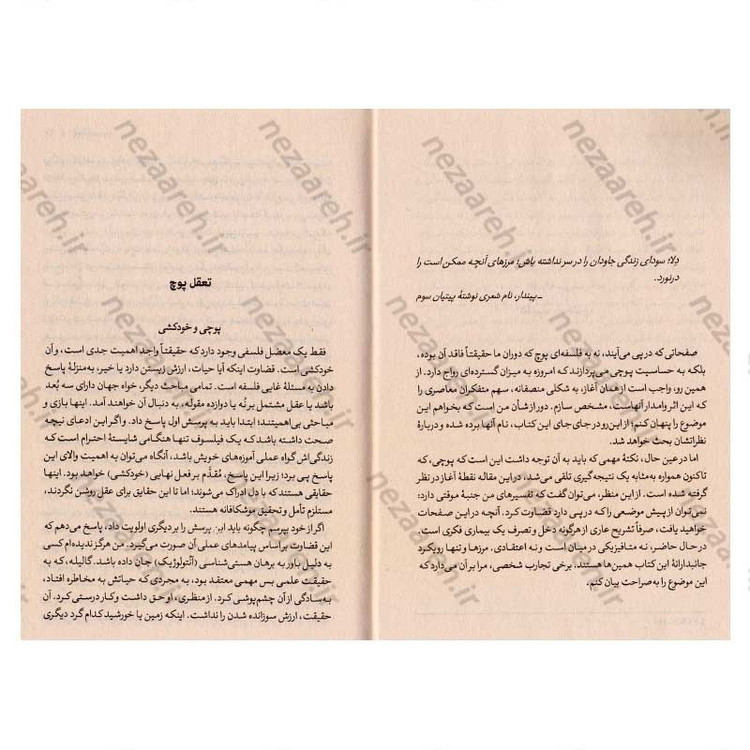 دِلا؛ سودای زندگی جاودان را در سر نداشته باش؛ مرزهای آنچه ممکن است را
درنورد.
ـ پیندار، نام شعری نوشتهٔ پیتیان سوم
صفحاتی که در پی می‌آیند، نه به فلسفه‌ای پوچ که دوران ما حقیقتاً فاقد آن بوده،
بلکه به حساسیت پوچی می‌پردازند که امروزه به میزان گسترده‌ای رواج دارد. از
همین رو، واجب است از همان آغاز، به شکلی منصفانه، سهم متفکران معاصری را
که این اثر وامدار آنهاست، مشخص سازم. دور از شأن من است که بخواهم این
موضوع را پنهان کنم؛ از این رو در جای جای این کتاب، نام آنها برده شده و دربارهٔ
نظراتشان بحث خواهد شد.
اما در عین حال، نکتهٔ مهمی که باید به آن توجه داشت این است که پوچی، که
تاکنون همواره به‌مثابه یک نتیجه‌گیری تلقی می‌شد، در این مقاله نقطهٔ آغاز در نظر
گرفته شده است. از این منظر، می‌توان گفت که تفسیرهای من جنبهٔ موقتی دارد؛
نمی‌توان از پیش موضعی را که در پی دارد قضاوت کرد. آنچه در این صفحات
خواهید یافت، صرفاً تشریح عاری از هرگونه دخل و تصرف یک بیماری فکری است.
در حال حاضر، نه متافیزیکی در میان است و نه اعتقادی. مرزها و تنها رویکرد
جانبدارانهٔ این کتاب همین‌ها هستند. برخی تجارب شخصی، مرا بر آن می‌دارد که
این موضوع را به‌صراحت بیان کنم.
تعقل پوچ
پوچی و خودکشی
فقط یک معضل فلسفی وجود دارد که حقیقتاً واجد اهمیت جدی است، و آن
خودکشی است. قضاوت اینکه آیا حیات، ارزش زیستن دارد یا خیر، به‌منزلهٔ پاسخ
دادن به مسئلهٔ غایی فلسفه است. تمامی مباحث دیگر، خواه جهان دارای سه بُعد
باشد یا عقل مشتمل بر نُه یا دوازده مقوله، به دنبال آن خواهند آمد. اینها بازی و
مباحثی بی‌اهمیتند؛ ابتدا باید به پرسش اول پاسخ داد. و اگر این ادعای نیچه
صحت داشته باشد که یک فیلسوف تنها هنگامی شایستهٔ احترام است که
زندگی‌اش گواه عملی آموزه‌های خویش باشد، آنگاه می‌توان به اهمیت والای این
پاسخ پی برد؛ زیرا این پاسخ، مُقدَّم بر فعل نهایی (خودکشی) خواهد بود. اینها
حقایقی هستند که با دل ادراک می‌شوند؛ اما تا این حقایق برای عقل روشن نگردند،
مستلزم تأمل و تحقیق موشکافانه هستند.
اگر از خود بپرسم چگونه باید این پرسش را بر دیگری اولویت داد، پاسخ می‌دهم که
این قضاوت بر اساس پیامدهای عملی آن صورت می‌گیرد. من هرگز ندیده‌ام کسی
به دلیل باور به برهان هستی‌شناسی (آنتولوژیک)، جان داده باشد. گالیله، که به
حقیقت علمی بس مهمی معتقد بود، به مجردی که حیاتش به مخاطره افتاد،
به‌سادگی از آن چشم‌پوشی کرد. از منظری، او حق داشت و کار درستی کرد. آن
حقیقت، ارزش سوزانده شدن را نداشت. اینکه زمین یا خورشید کدام گرد دیگری
nezaareh.ir